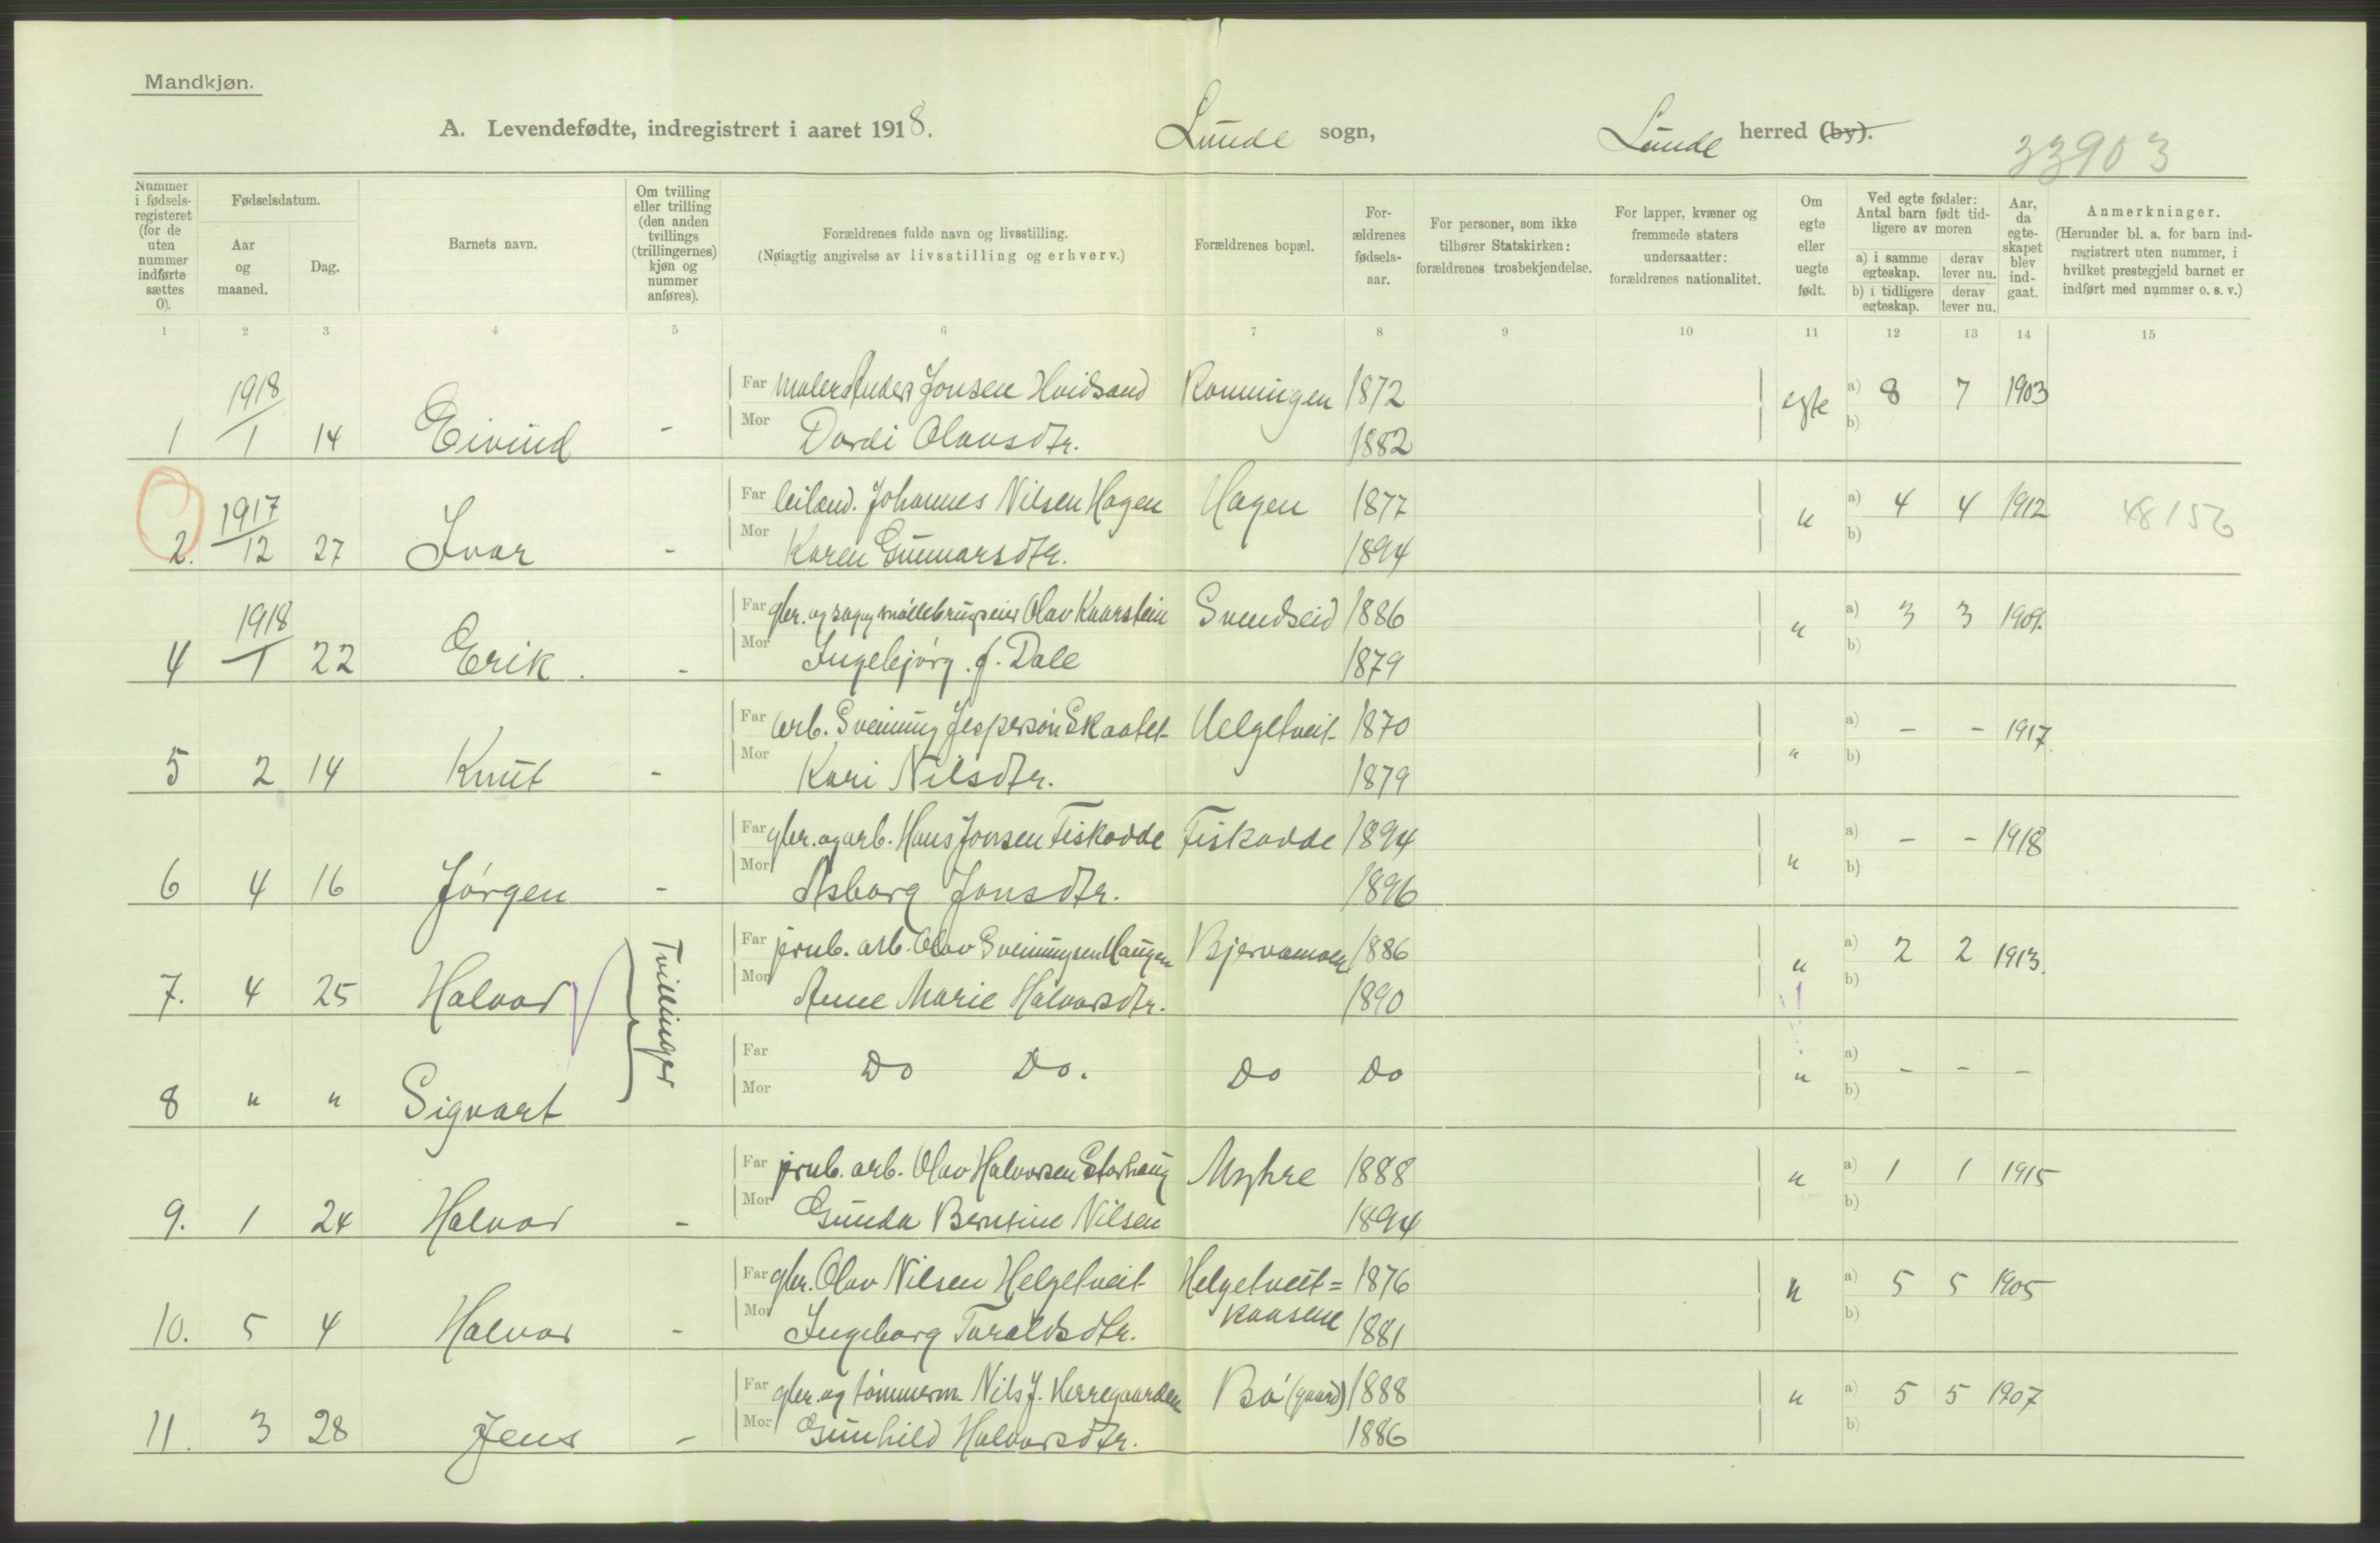 Mandkjøn.
A. Levendefødte, indregistrert i aaret 1918. Lunde sogn, Lunde herred (by). 33903
Nummer i fødselsregisteret (for de uten nummer indførte sættes 0).
Fødselsdatum.
Aar og maaned.
Dag.
Barnets navn.
Om tvilling eller trilling (den anden tvillings (trillingernes) kjøn og nummer anføres).
Forældrenes fulde navn og livsstilling.
(Nøiagtig angivelse av livsstilling og erhverv.)
Forældrenes bopæl.
Forældrenes fødselsaar.
For personer, som ikke tilhører Statskirken: forældrenes trosbekjendelse.
For lapper, kvæner og fremmede staters undersaatter: forældrenes nationalitet.
Om egte eller uegte født.
Ved egte fødsler: Antal barn født tidligere av moren
a) i samme egteskap. derav lever nu.
b) i tidligere egteskap. derav lever nu.
Aar, da egteskapet blev indgaat.
Anmerkninger.
(Herunder bl. a. for barn indregistrert uten nummer, i hvilket prestegjeld barnet er indført med nummer o. s. v.)
1 2 3 4 5 6 7 8 9 10 11 12 13 14 15
Far maler Anders Jonsen Hvidsand Rønningen 1872 egte a) 8 7 1903
1 1918/1 14 Eivind - Mor Dordi Olavsdtr. 1882 b)
Far leiland. Johannes Nilsen Hagen Hagen 1877 " a) 4 4 1912 48156
2. 1917/12 27 Ivar - Mor Karen Gunnarsdtr. 1894 b)
Far gbr. og sag og møllebrugseier Olav Kaarstein Svendseid 1886 " a) 3 3 1909.
4 1918/1 22 Erik. - Mor Ingebjørg f. Dale 1879 b)
Far arb. Sveinung Jespersøn Skaatet Helgetveit 1870 " a) - - 1917.
5 2 14 Knut - Mor Kari Nilsdtr. 1879 b)
Far gbr. og arb. Hans Jonsen Fiskodde Fiskodde 1894 " a) - - 1918
6 4 16 Jørgen - Mor Asborg Jonsdtr. 1896 b)
Far jrnb. arb. Olav Sveinungsen Haugen Bjervamoen 1886 " a) 2 2 1913.
7. 4 25 Halvor Tvillinger Mor Anne Marie Halvorsdtr. 1890 b)
Far Do Do. Do Do " a) - - -
8 " " Sigvart Mor b)
Far jrnb. arb. Olav Halvorsen Storhaug Myhre 1888 " a) 1 1 1915
9. 1 24 Halvor - Mor Gunda Berntine Nilsen 1894 b)
Far gbr. Olav Nilsen Helgetveit Helgetveit= 1876 " a) 5 5 1905
10. 5 4 Halvor - Mor Ingeborg Taraldsdtr. kaasene 1881 b)
Far gbr. og tømmerm. Nils J. Herregaarden Bø (gaard) 1888 " a) 5 5 1907
11. 3 28 Jens - Mor Gunhild Halvorsdtr. 1886 b)